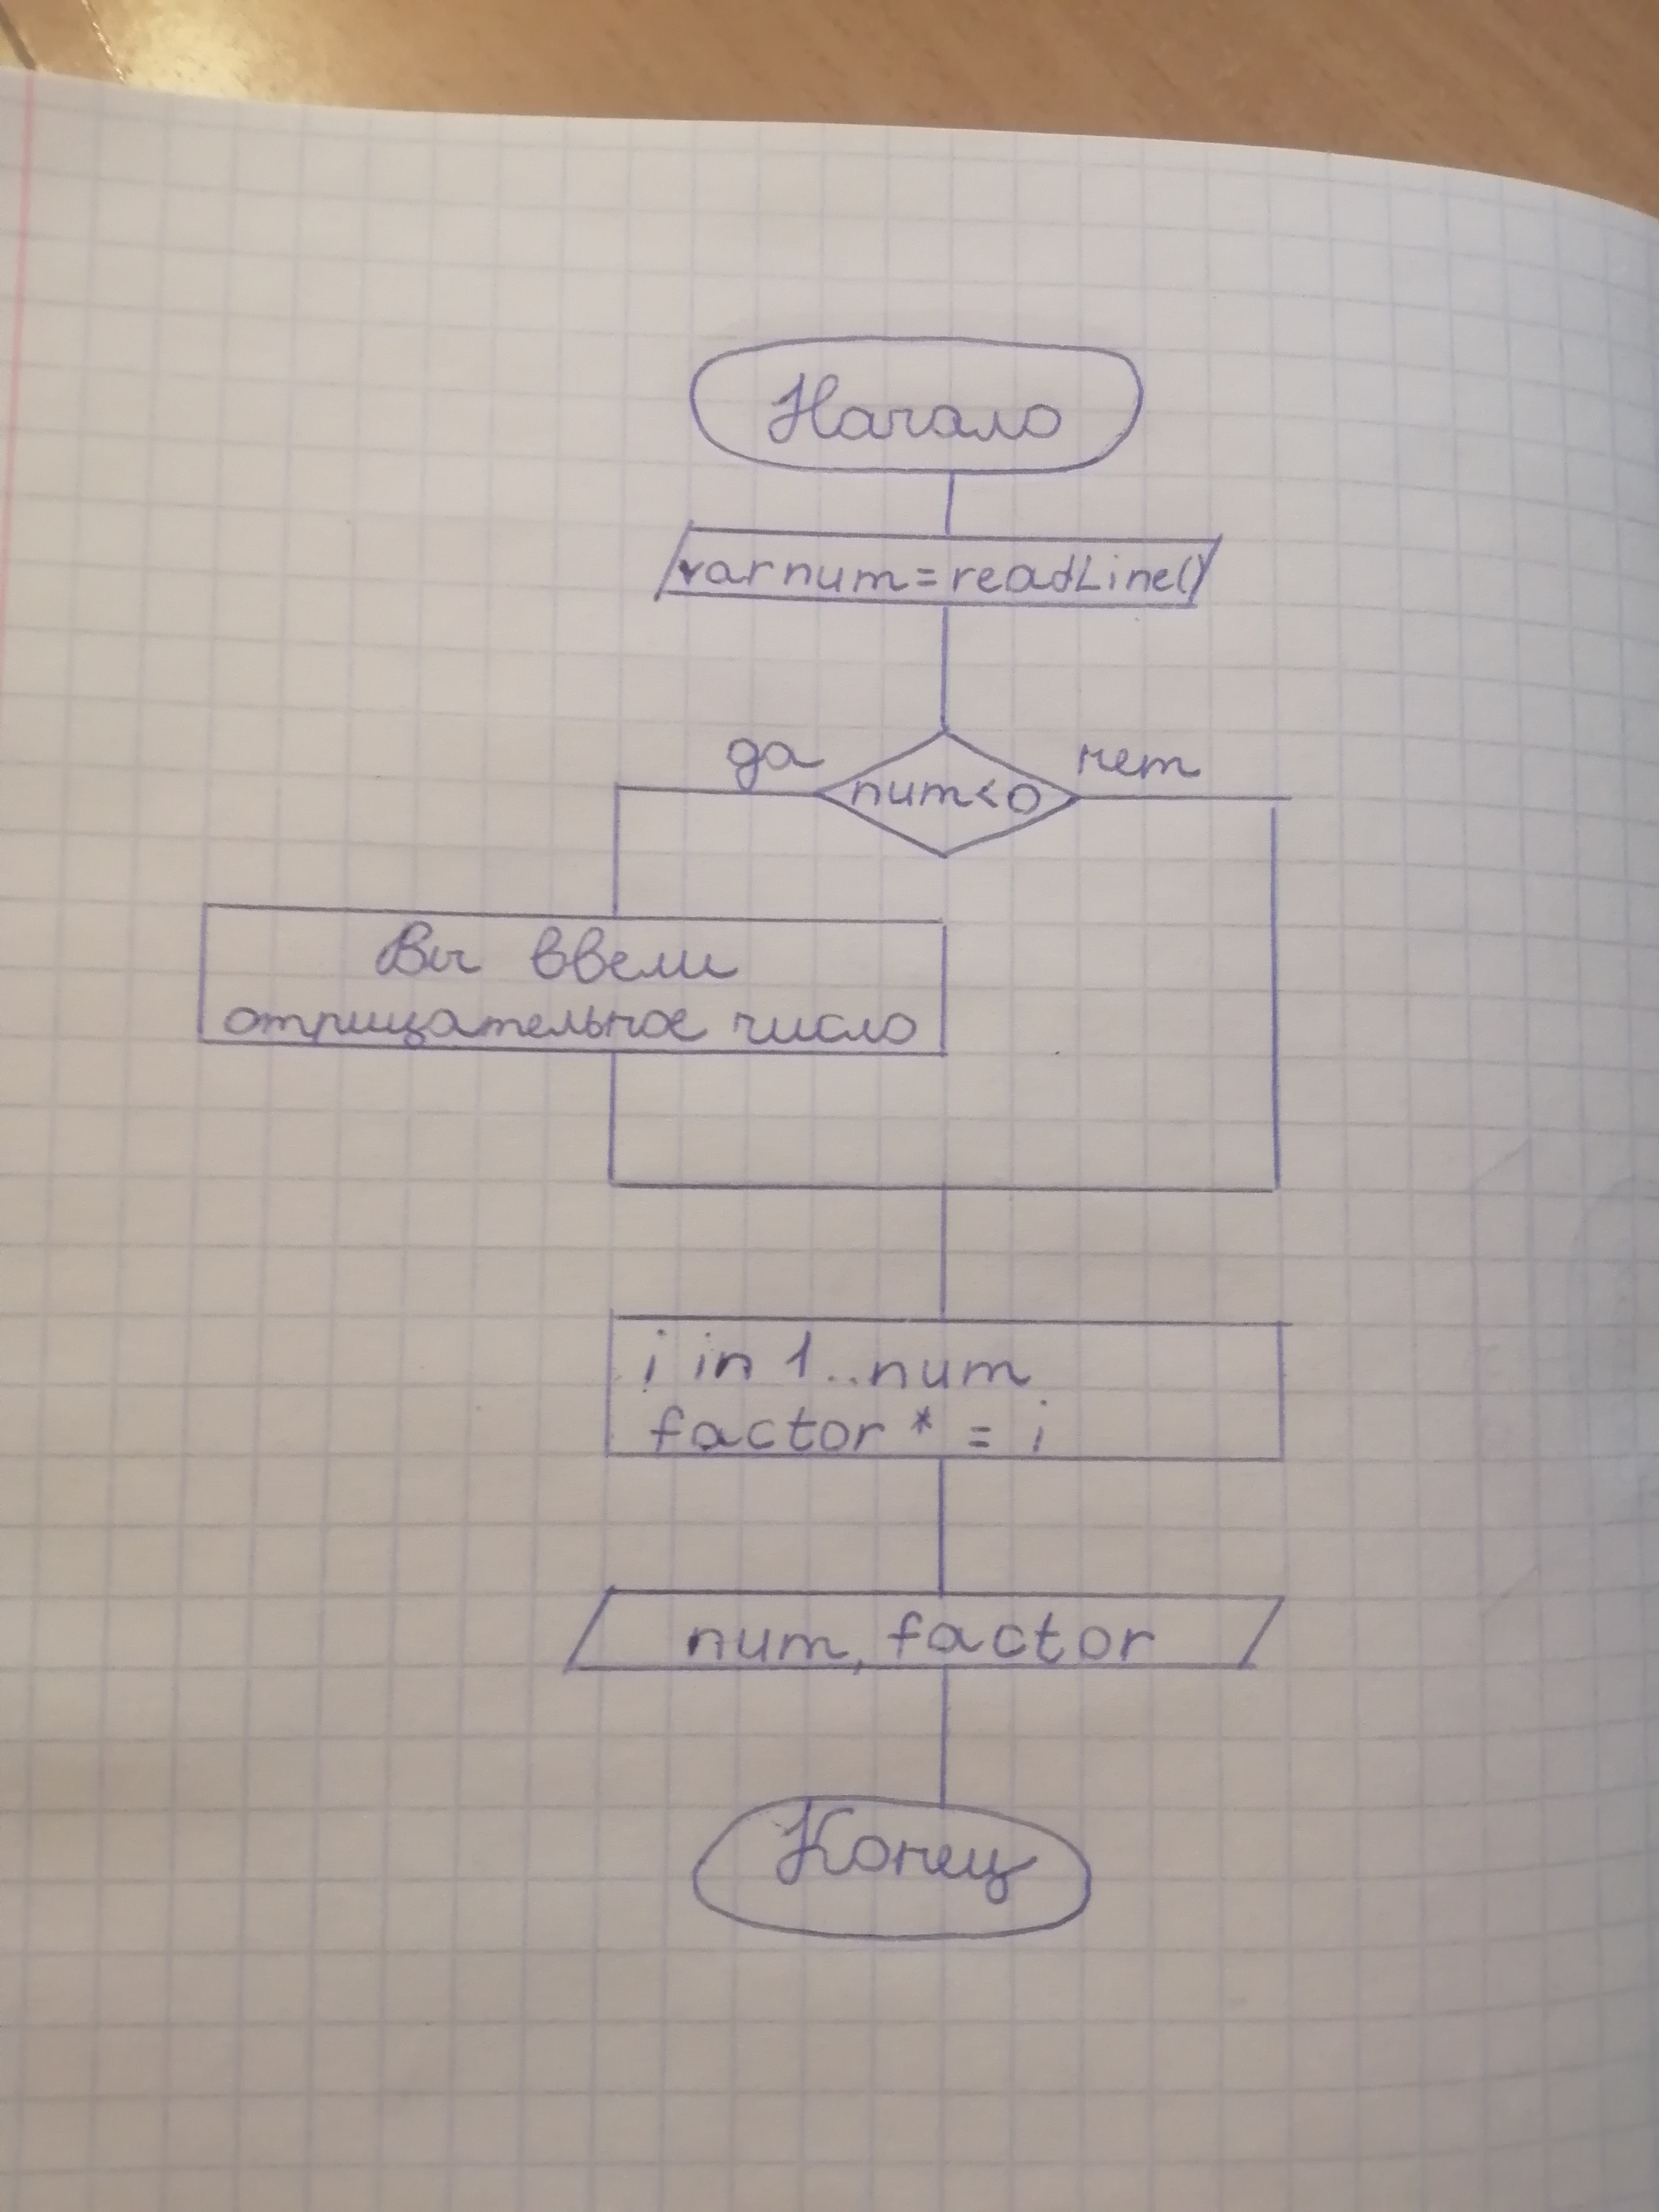 Начало
var num = readLine()
да
нет
num<0
Вы ввели
отрицательное число
i in 1..num
factor * = i
num, factor
Конец